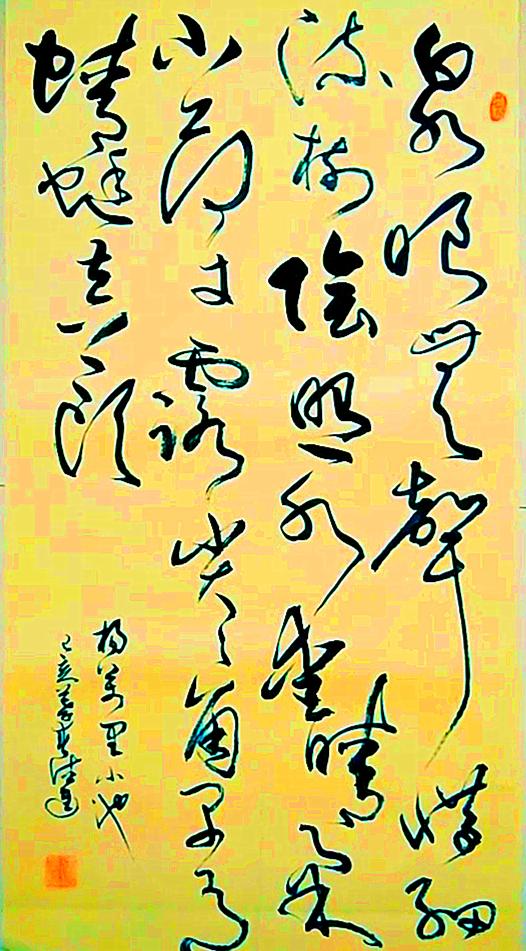 泉眼無聲惜細
流樹陰照水愛晴柔
小荷才露尖尖角早有
蜻蜓立上頭
楊萬里小池
己亥